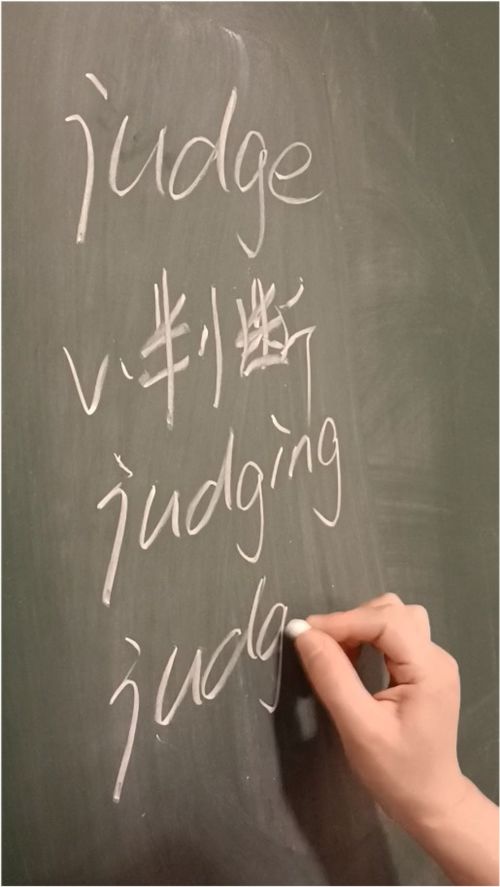 judge
v.判断
judging
judg